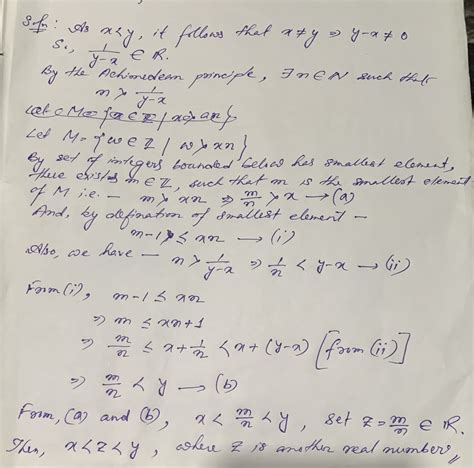 Soln: As x<y, it follows that x≠y ⇒ y-x≠0
So, 1/(y-x) ∈ R.
By the Achimedean principle, ∃ n∈N such that
n > 1/(y-x)
Let M={x∈Z | x>an}
Let M={w∈Z | w>xn}
By set of integers bounded below has smallest element,
there exists m∈Z, such that m is the smallest element
of M i.e. - m > xn ⇒ m/n > x → (a)
And, by defination of smallest element -
m-1 ≤ xn → (i)
Also, we have - n > 1/(y-x) ⇒ 1/n < y-x → (ii)
From(i), m-1 ≤ xn
⇒ m ≤ xn+1
⇒ m/n ≤ x+1/n < x+(y-x) [from (ii)]
⇒ m/n < y → (b)
From, (a) and (b), x < m/n < y, Set z=m/n ∈ R.
Then, x<z<y, where z is another real number,,